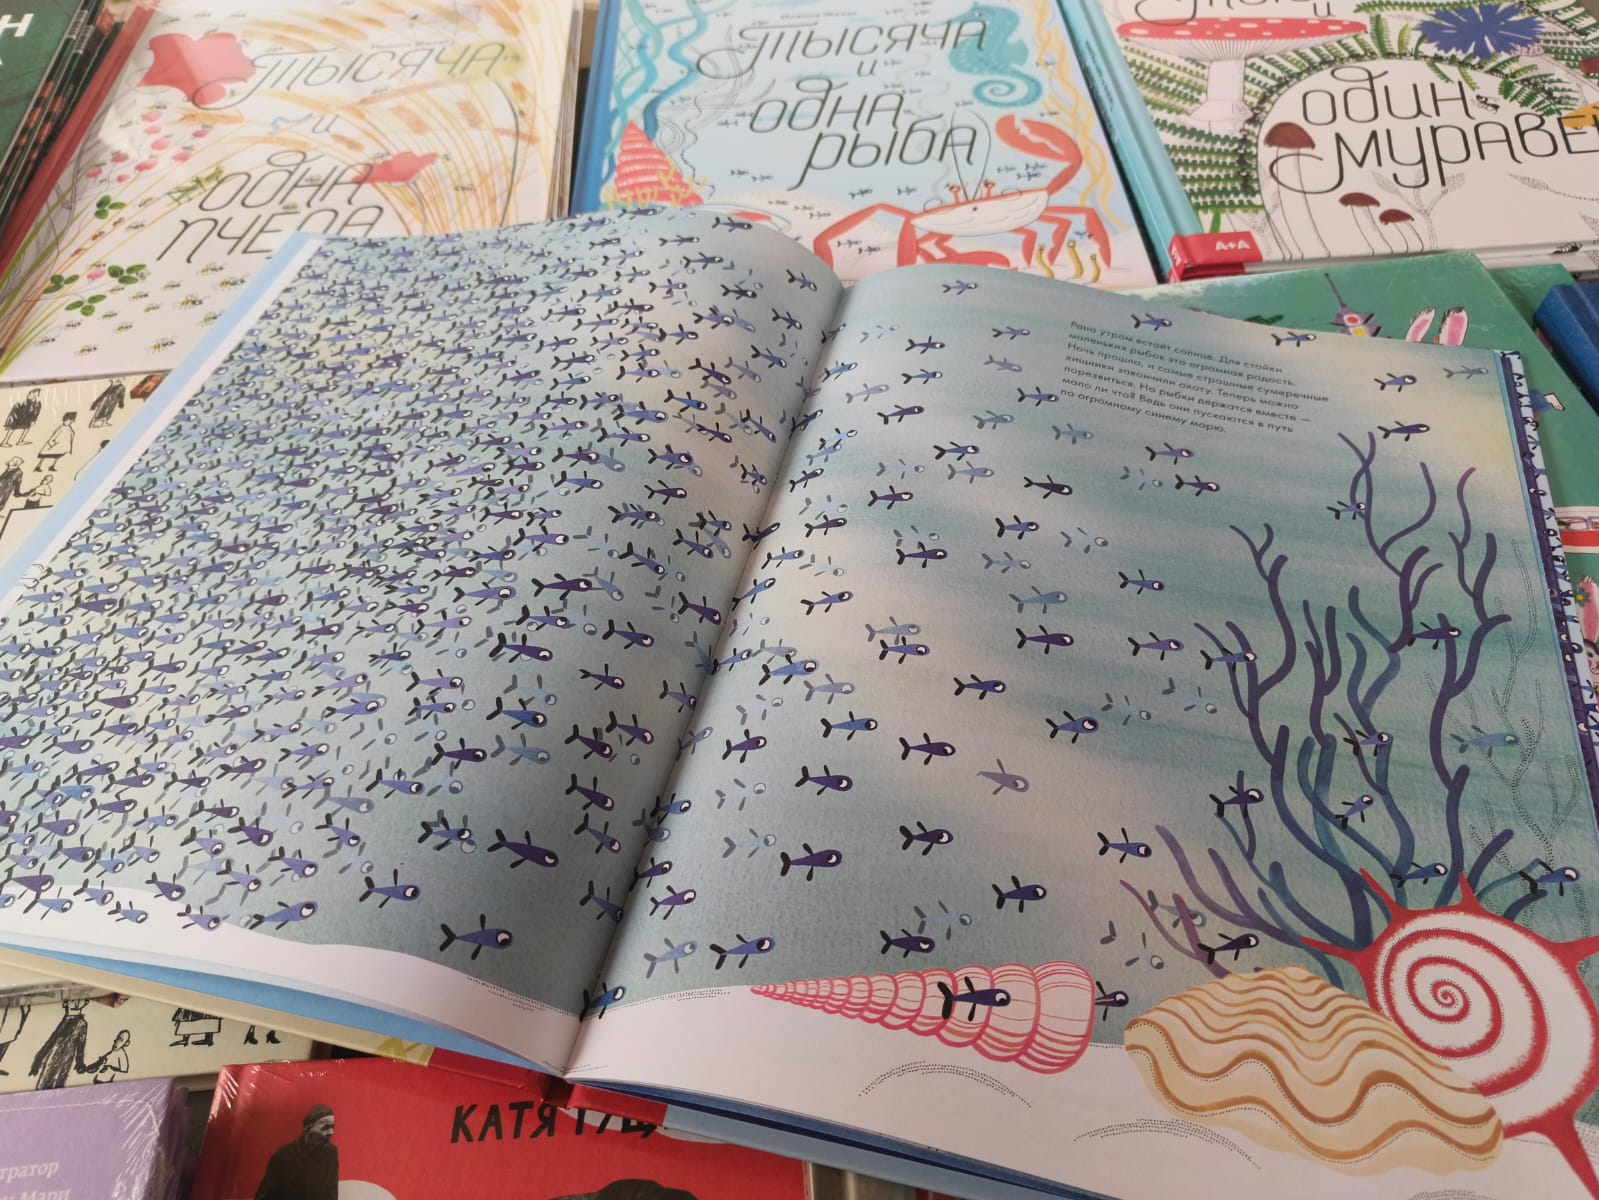 Тысяча
и
одна
пчела
Тысяча
и
одна
рыба
и
один
муравей
А+А
Рано утром встаёт солнце. Для стайки
маленьких рыбок это огромная радость.
Ночь прошла, и самые страшные сумеречные
хищники закончили охоту. Теперь можно
порезвиться. Но рыбки держатся вместе —
мало ли что? Ведь они пускаются в путь
по огромному синему морю.
КАТЯ